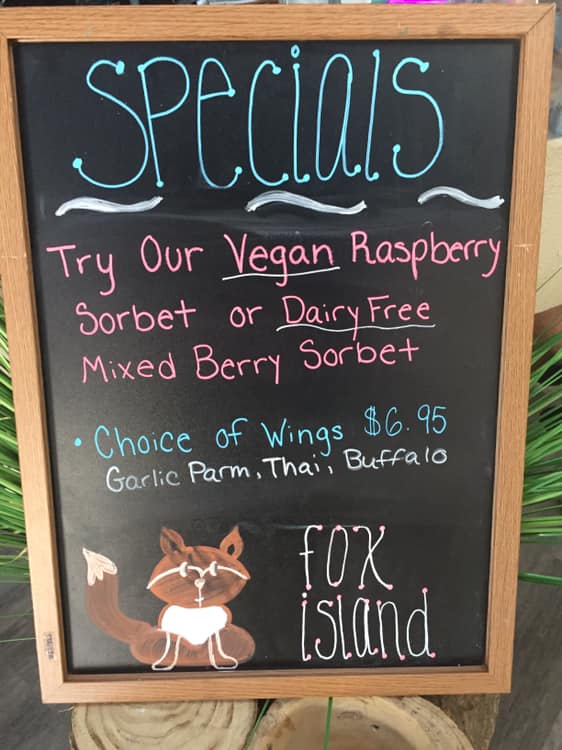 Specials
Try Our Vegan Raspberry
Sorbet or Dairy Free
Mixed Berry Sorbet
• Choice of Wings $6.95
Garlic Parm, Thai, Buffalo
fox
island